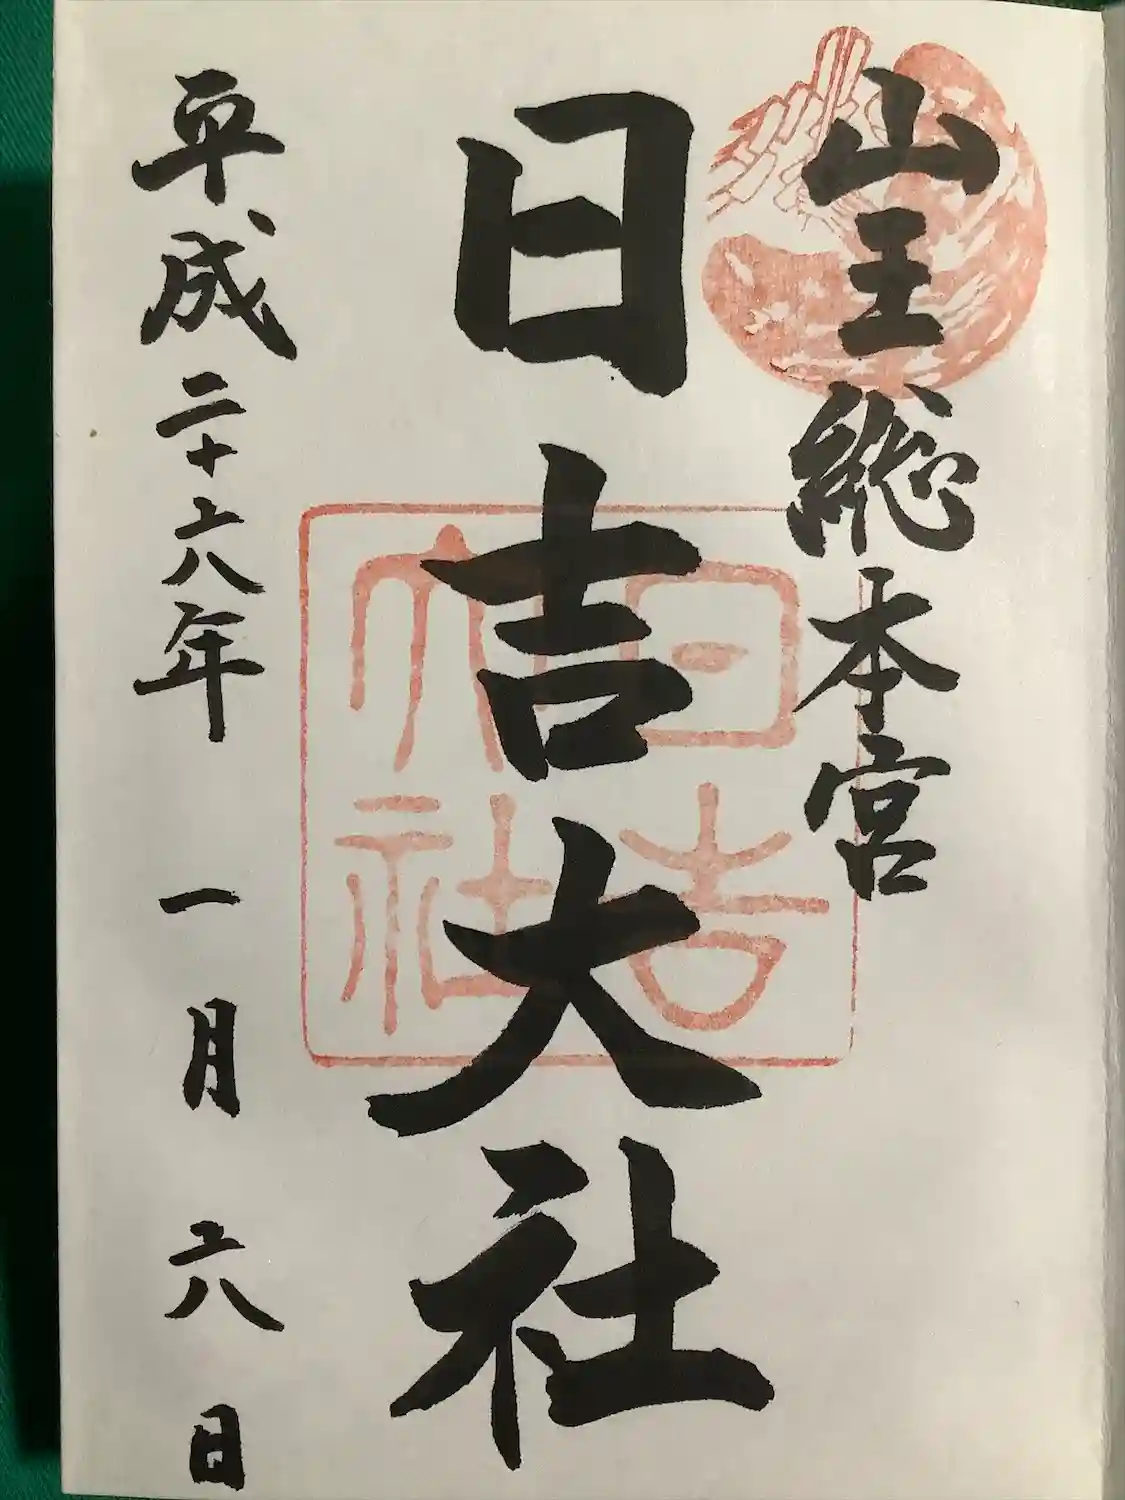 山王総本宮
日吉大社
平成二十六年一月六日
日吉
大社